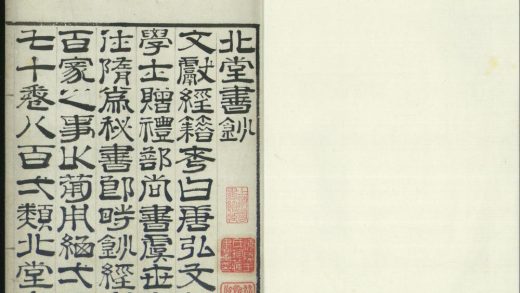 北堂書鈔
文獻經籍考曰唐弘文
學士贈禮部尚書虞世
仕隋爲秘書郎時鈔經
百家之事以備用緫弌
七十卷八百弌類北堂